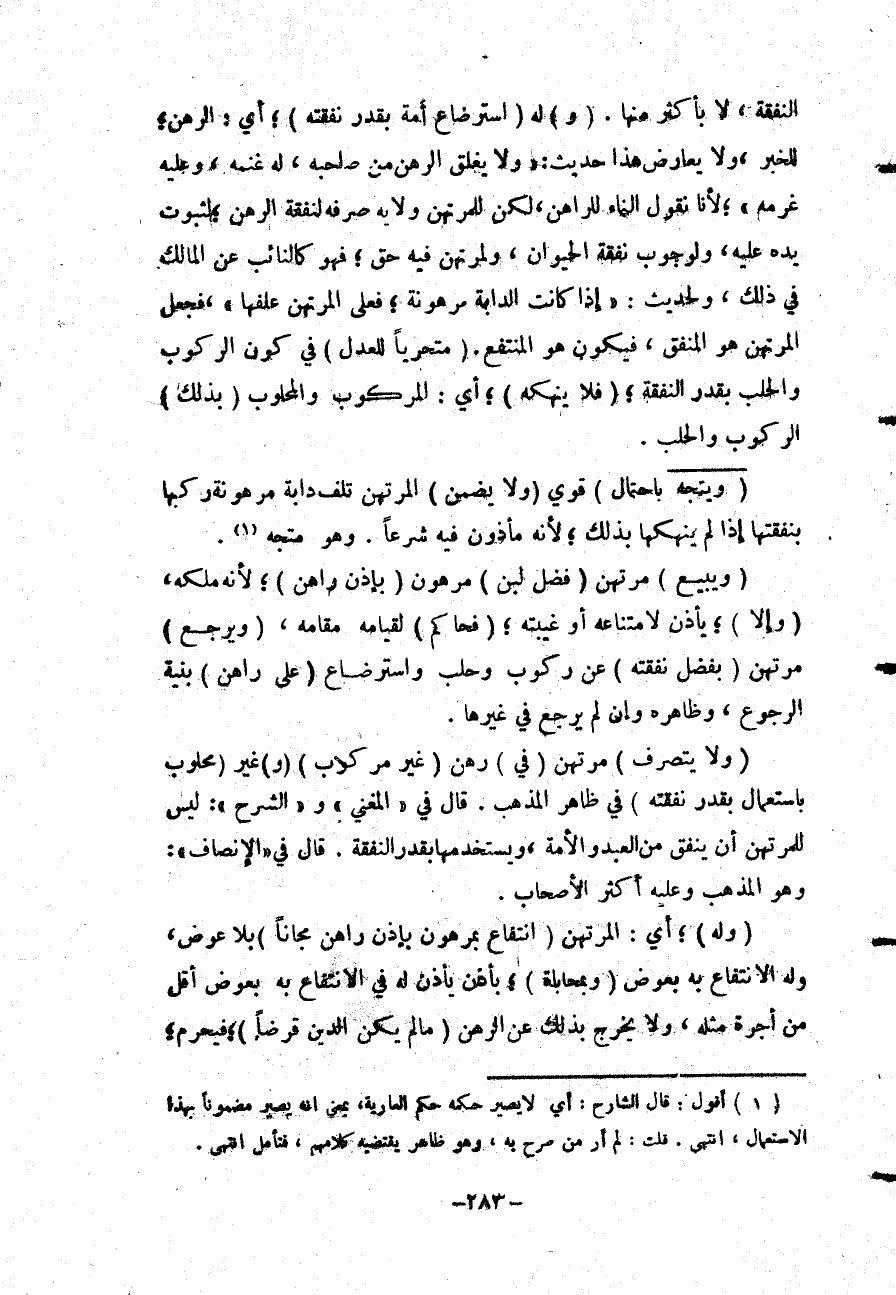 النفقة ، لا بأكثر منها . ( و ) له ( استرضاع أمة بقدر نفقته ) ؛ أي : الرهن ؛
للخبر ، ولا يعارض هذا حديث : « ولا يغلق الرهن من صاحبه ، له غنمه ، وعليه
غرمه » ؛ لأنا نقول النماء للراهن ، لكن للمرتهن ولاية صرفه لنفقة الرهن ؛ لثبوت
يده عليه ، ولوجوب نفقة الحيوان ، ولمرتهن فيه حق ؛ فهو كالنائب عن المالك
في ذلك ، ولحديث : « إذا كانت الدابة مرهونة ؛ فعلى المرتهن علفها » ، فجعل
المرتهن هو المنفق ، فيكون هو المنتفع . ( متحرياً للعدل ) في كون الركوب
والحلب بقدر النفقة ؛ ( فلا ينهكه ) ؛ أي : المركوب والمحلوب ( بذلك )
الركوب والحلب .
( ويتجه باحتمال ) قوي ( ولا يضمن ) المرتهن تلف دابة مرهونة ركبها
بنفقتها إذا لم ينهكها بذلك ؛ لأنه مأذون فيه شرعاً . وهو متجه (١) .
( ويبيع ) مرتهن ( فضل لبن ) مرهون ( بإذن راهن ) ؛ لأنه ملكه ،
( وإلا ) ؛ يأذن لامتناعه أو غيبته ؛ ( فحاكم ) لقيامه مقامه ، ( ويرجع )
مرتهن ( بفضل نفقته ) عن ركوب وحلب واسترضاع ( على راهن ) بنية
الرجوع ، وظاهره وإن لم يرجع في غيرها .
( ولا يتصرف ) مرتهن ( في ) رهن ( غير مركوب ) ( و ) غير ( محلوب
باستعمال بقدر نفقته ) في ظاهر المذهب . قال في « المغني » و « الشرح » : ليس
للمرتهن أن ينفق من العبد والأمة ، ويستخدمها بقدر النفقة . قال في « الإنصاف » :
وهو المذهب وعليه أكثر الأصحاب .
( وله ) ؛ أي : المرتهن ( انتفاع بمرهون بإذن راهن مجاناً ) بلا عوض ،
وله الانتفاع به بعوض ( وبمحاباة ) ؛ بأن يأذن له في الانتفاع به بعوض أقل
من أجرة مثله ، ولا يخرج بذلك عن الرهن ( مالم يكن الدين قرضاً ) ؛ فيحرم ؛
( ١ ) أقول : قال الشارح : أي لايصير حكمه حكم العارية ، بمعنى انه يصير مضموناً بهذا
الاستعمال ، انتهى . قلت : لم أر من صرح به ، وهو ظاهر يقتضيه كلامهم ، فتأمل انتهى .
-٢٨٣-